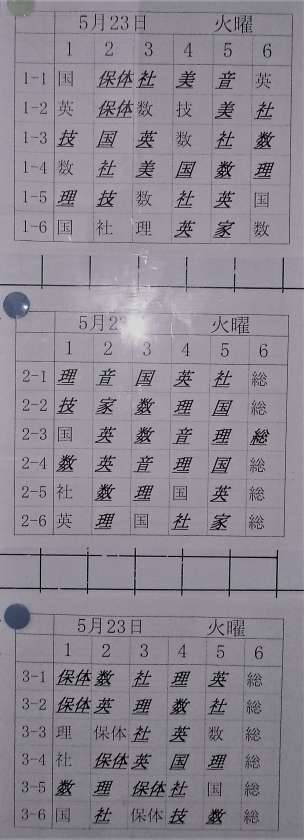 5月23日 火曜
1 2 3 4 5 6
1-1 国 保体 社 美 音 英
1-2 英 保体 数 技 美 社
1-3 技 国 英 数 社 数
1-4 数 社 美 国 数 理
1-5 理 技 数 社 英 国
1-6 国 社 理 英 家 数
5月23日 火曜
1 2 3 4 5 6
2-1 理 音 国 英 社 総
2-2 技 家 数 理 国 総
2-3 国 英 数 音 理 総
2-4 数 英 音 理 国 総
2-5 社 数 理 国 英 総
2-6 英 理 国 社 家 総
5月23日 火曜
1 2 3 4 5 6
3-1 保体 数 社 理 英 総
3-2 保体 英 理 数 社 総
3-3 理 保体 社 英 数 総
3-4 社 保体 英 国 理 総
3-5 数 理 保体 社 国 総
3-6 国 社 保体 技 数 総